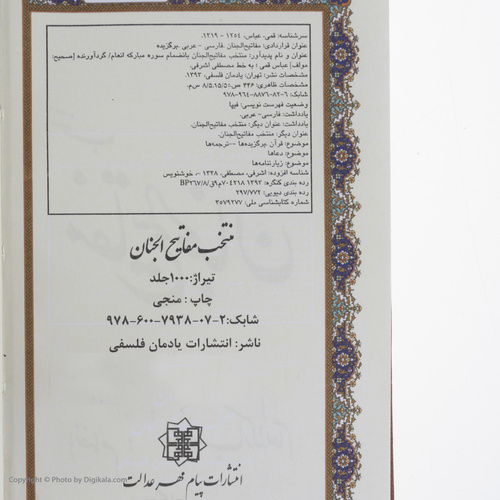 سرشناسه: قمی، عباس، ۱۲۵۴ - ۱۳۱۹.
عنوان قراردادی: مفاتیح‌الجنان .فارسی - عربی .برگزیده
عنوان و نام پدیدآور: منتخب مفاتیح‌الجنان بانضمام سوره مبارکه انعام/ گردآورنده [صحیح:
مولف] عباس قمی ؛ به خط مصطفی اشرفی.
مشخصات نشر: تهران: یادمان فلسفی، ۱۳۹۲.
مشخصات ظاهری: ۴۳۶ ص.؛ ۸/۵×۱۵/۵ س‌م.
شابک: ۹۷۸-۹۶۴-۸۸۷۶-۸۲-۶
وضعیت فهرست نویسی: فیپا
یادداشت: فارسی- عربی.
یادداشت: عنوان دیگر: منتخب مفاتیح‌الجنان.
عنوان دیگر: منتخب مفاتیح‌الجنان.
موضوع: قرآن .برگزیده‌ها --ترجمه‌ها
موضوع: دعاها
موضوع: زیارتنامه‌ها
شناسه افزوده: اشرفی، مصطفی، ۱۳۳۸ -، خوشنویس
رده بندی کنگره: ۱۳۹۲
رده بندی دیویی: ۲۹۷/۷۷۲
شماره کتابشناسی ملی: ۳۵۷۹۲۷۷
منتخب مفاتیح الجنان
تیراژ:۱۰۰۰جلد
چاپ : منجی
شابک:۲-۰۷-۷۹۳۸-۶۰۰-۹۷۸
ناشر: انتشارات یادمان فلسفی
انتشارات پیام مهر عدالت
Copyright © Photo by Digikala.com